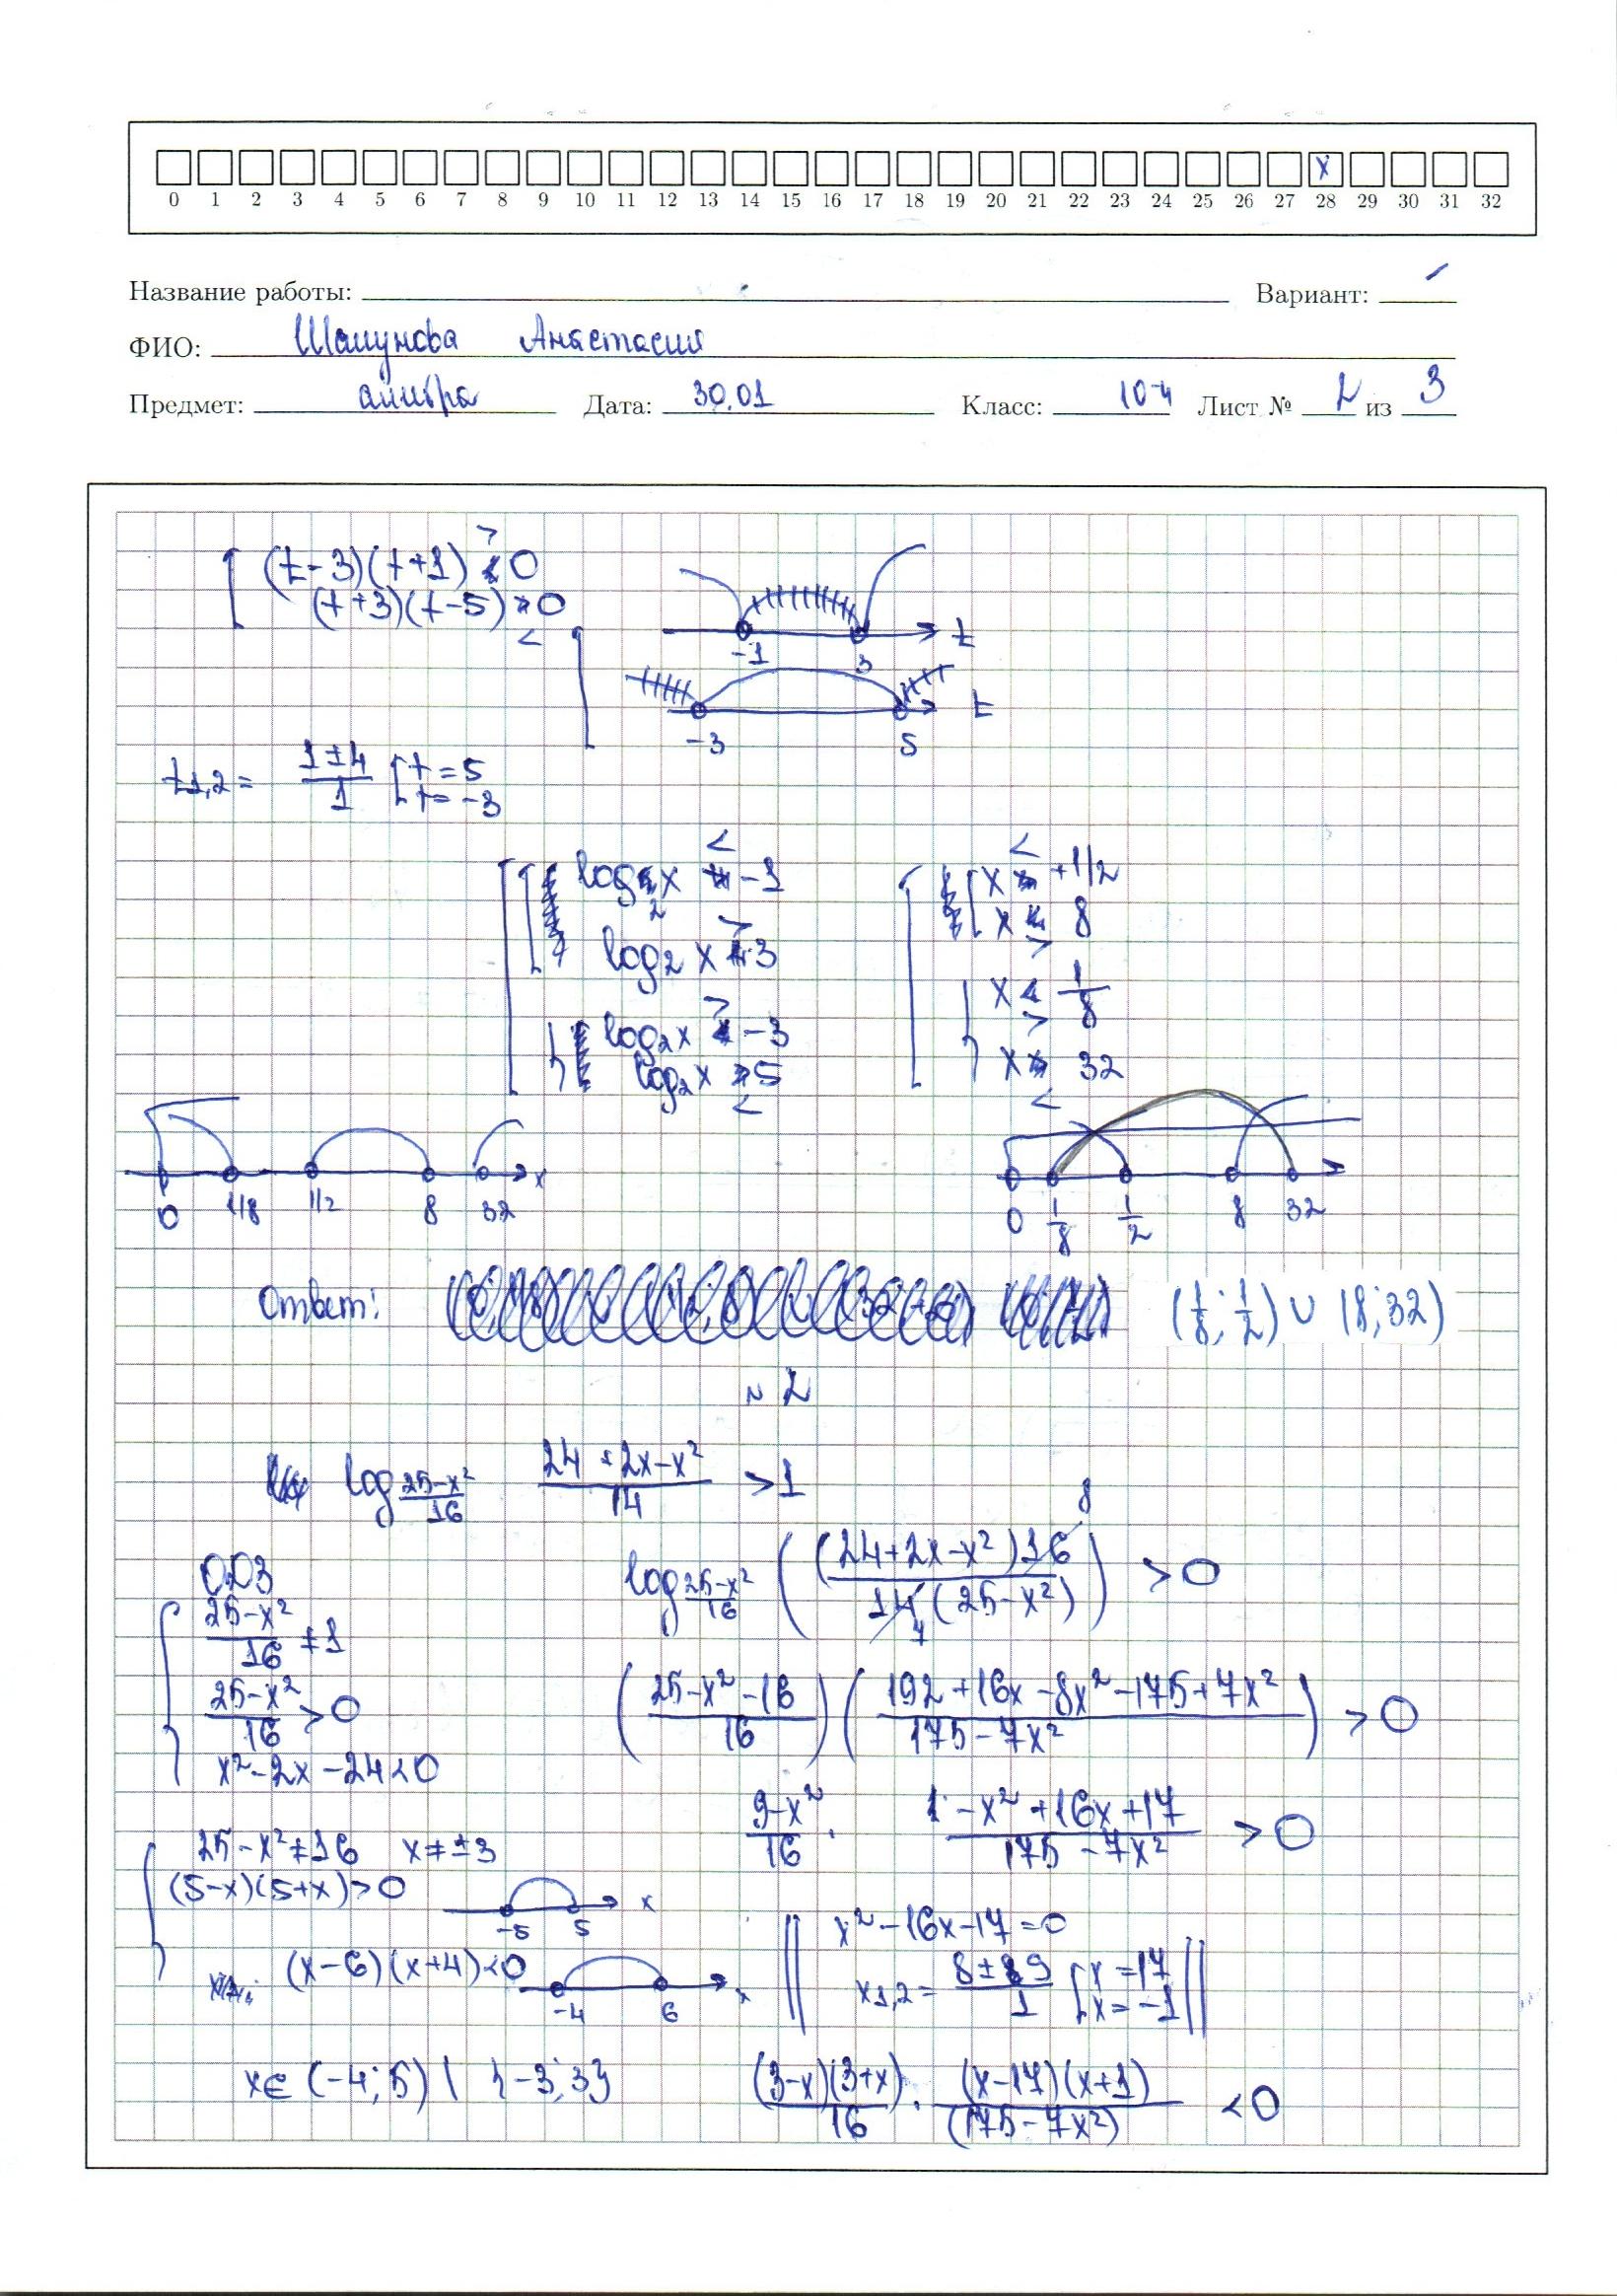 x
0 1 2 3 4 5 6 7 8 9 10 11 12 13 14 15 16 17 18 19 20 21 22 23 24 25 26 27 28 29 30 31 32
Название работы: Вариант:
ФИО: Шашунова Анастасия
Предмет: алгебра Дата: 30.01 Класс: 10-4 Лист № 2 из 3
(t-3)(t+1) > 0
(t+3)(t-5) < 0
-1 3 t
-3 5 t
t1,2 = (1±4)/1 [t=5
t=-3
log2 x < -1
x < +1/2
log2 x > 3
x > 8
log2 x > -3
x > 1/8
log2 x < 5
x < 32
0 1/8 1/2 8 32 x
0 1/8 1/2 8 32
Ответ: (1/8; 1/2) ∪ (8; 32)
№ 2
log (25-x²)/16 (24+2x-x²)/14 > 1
ОДЗ
(25-x²)/16 ≠ 1
(25-x²)/16 > 0
x²-2x-24<0
log (25-x²)/16 ( ((24+2x-x²)16 8)/(14 7 (25-x²)) ) > 0
((25-x²-16)/16) ((192+16x-8x²-175+7x²)/(175-7x²)) > 0
(9-x²)/16 · (-x²+16x+17)/(175-7x²) > 0
25-x²≠16 x≠±3
(5-x)(5+x)>0
-5 5 x
(x-6)(x+4)<0
-4 6 x
x²-16x-17=0
x1,2 = (8±9)/1 [x=17
x=-1
x∈ (-4;5) \ {-3;3}
(3-x)(3+x)/16 · (x-17)(x+1)/(175-7x²) <0